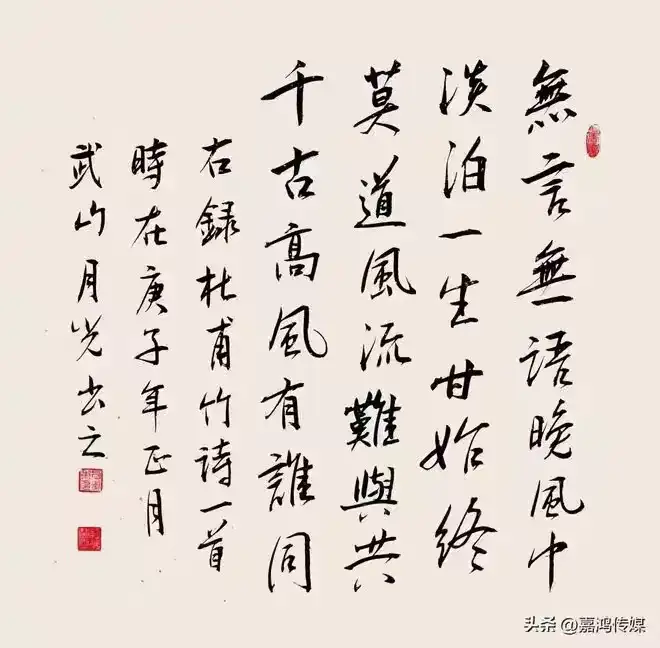 無言無語晚風中
淡泊一生甘始終
莫道風流難與共
千古高風有誰同
右録杜甫竹詩一首
時在庚子年正月
武山月光书之
头条 @嘉鸿传媒